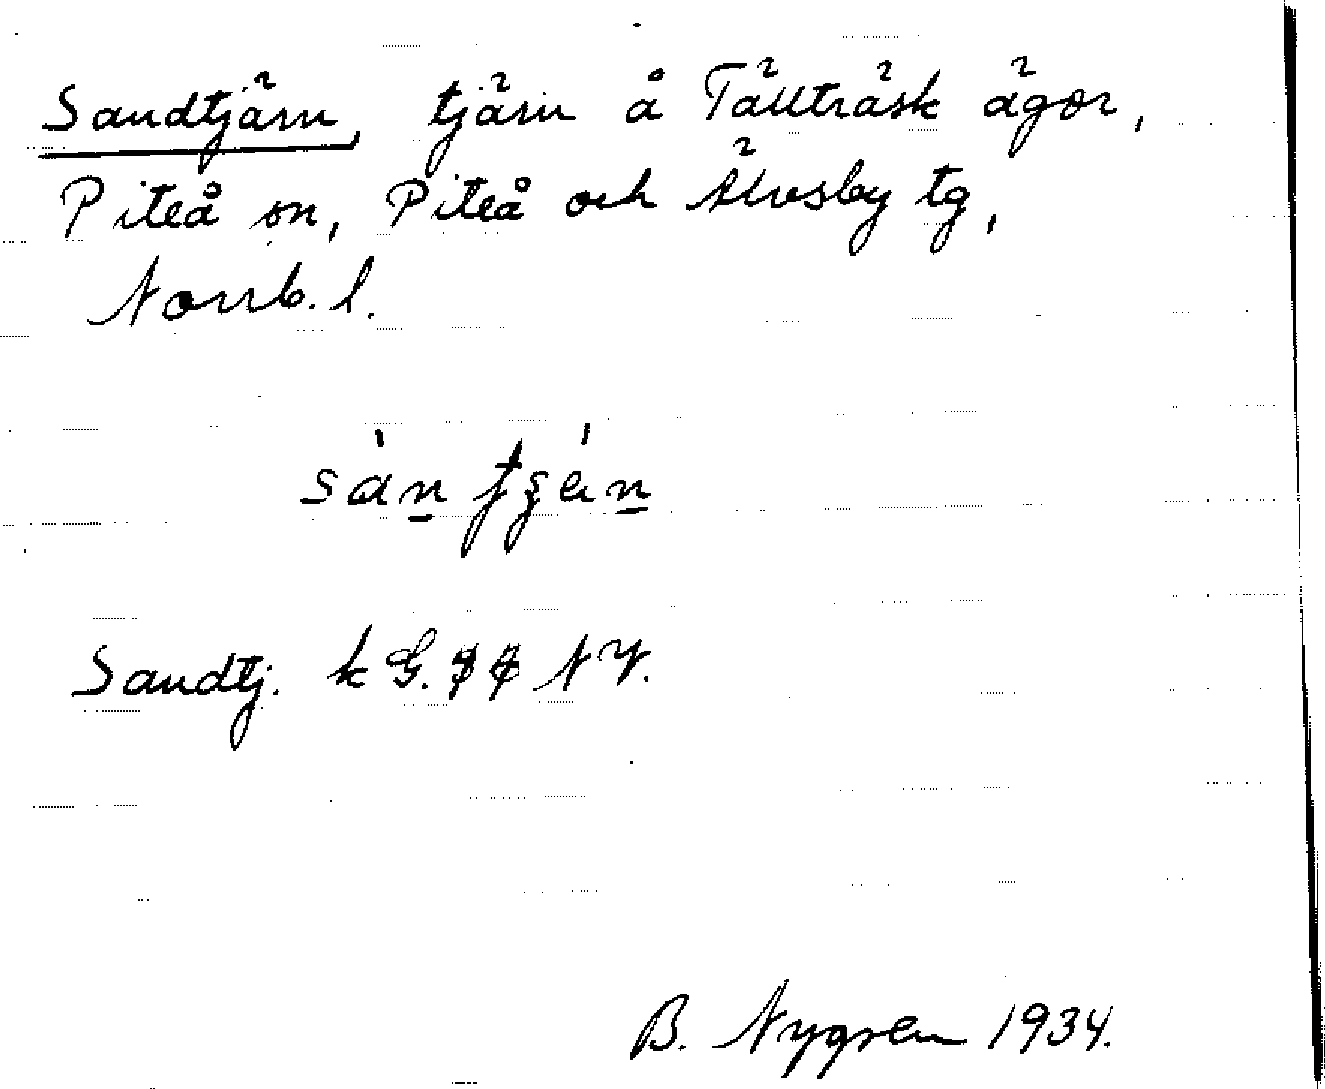 Sandtjärn, tjärn å Tällträsk ägor,
Piteå sn, Piteå och Älvsby tg,
Norrb. l.
Sandtj. k G.
B. Nygren 1934.